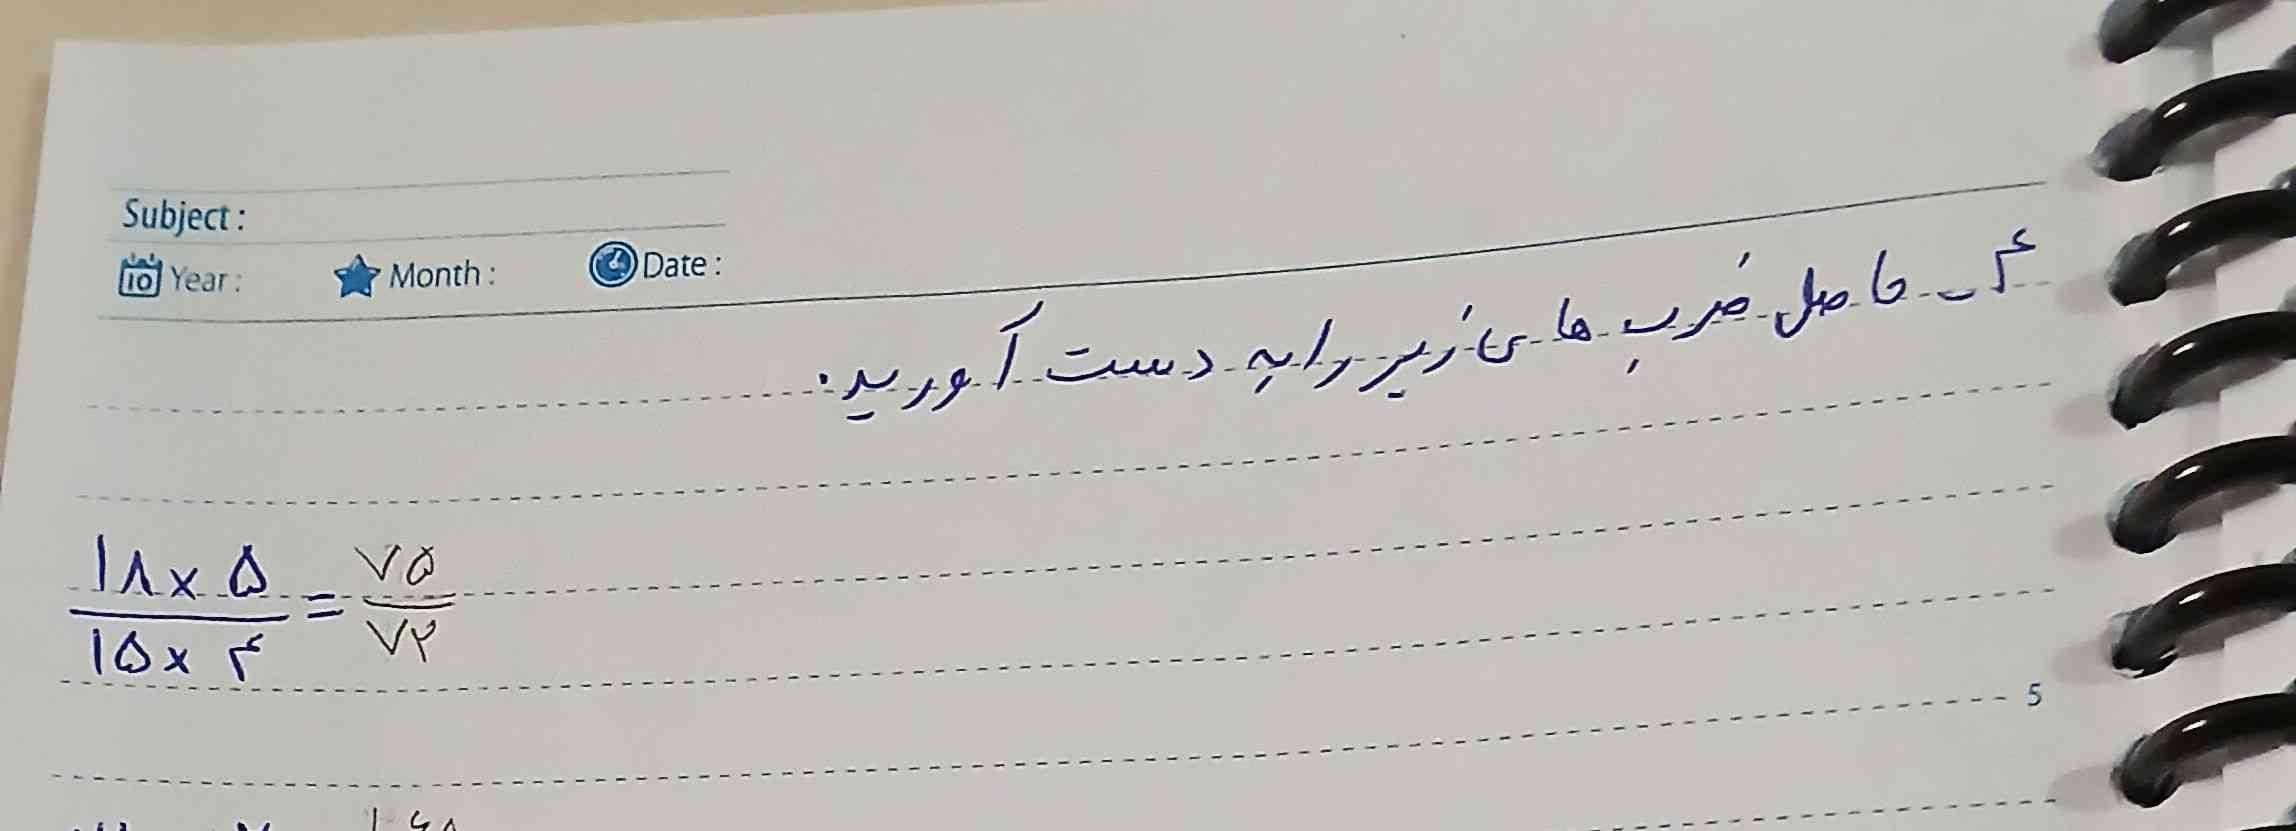 Subject :
10 Year : Month : Date :
۴ - حاصل ضرب های زیر را به دست آورید.
۱۸ × ۵ / ۱۵ × ۴ = ۷۵ / ۷۲
5